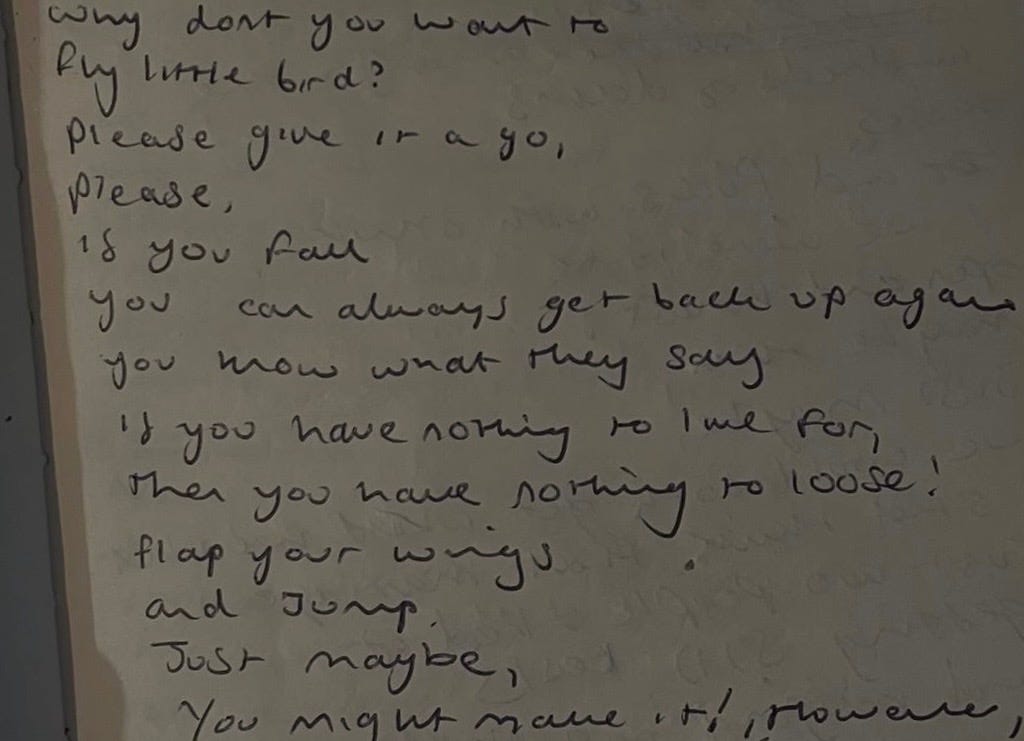 Why dont you want to
fly little bird?
Please give it a go,
Please,
if you fall
you can always get back up again
you know what they say
if you have nothing to live for,
then you have nothing to loose!
flap your wings
and Jump.
Just maybe,
You might make it!, However,